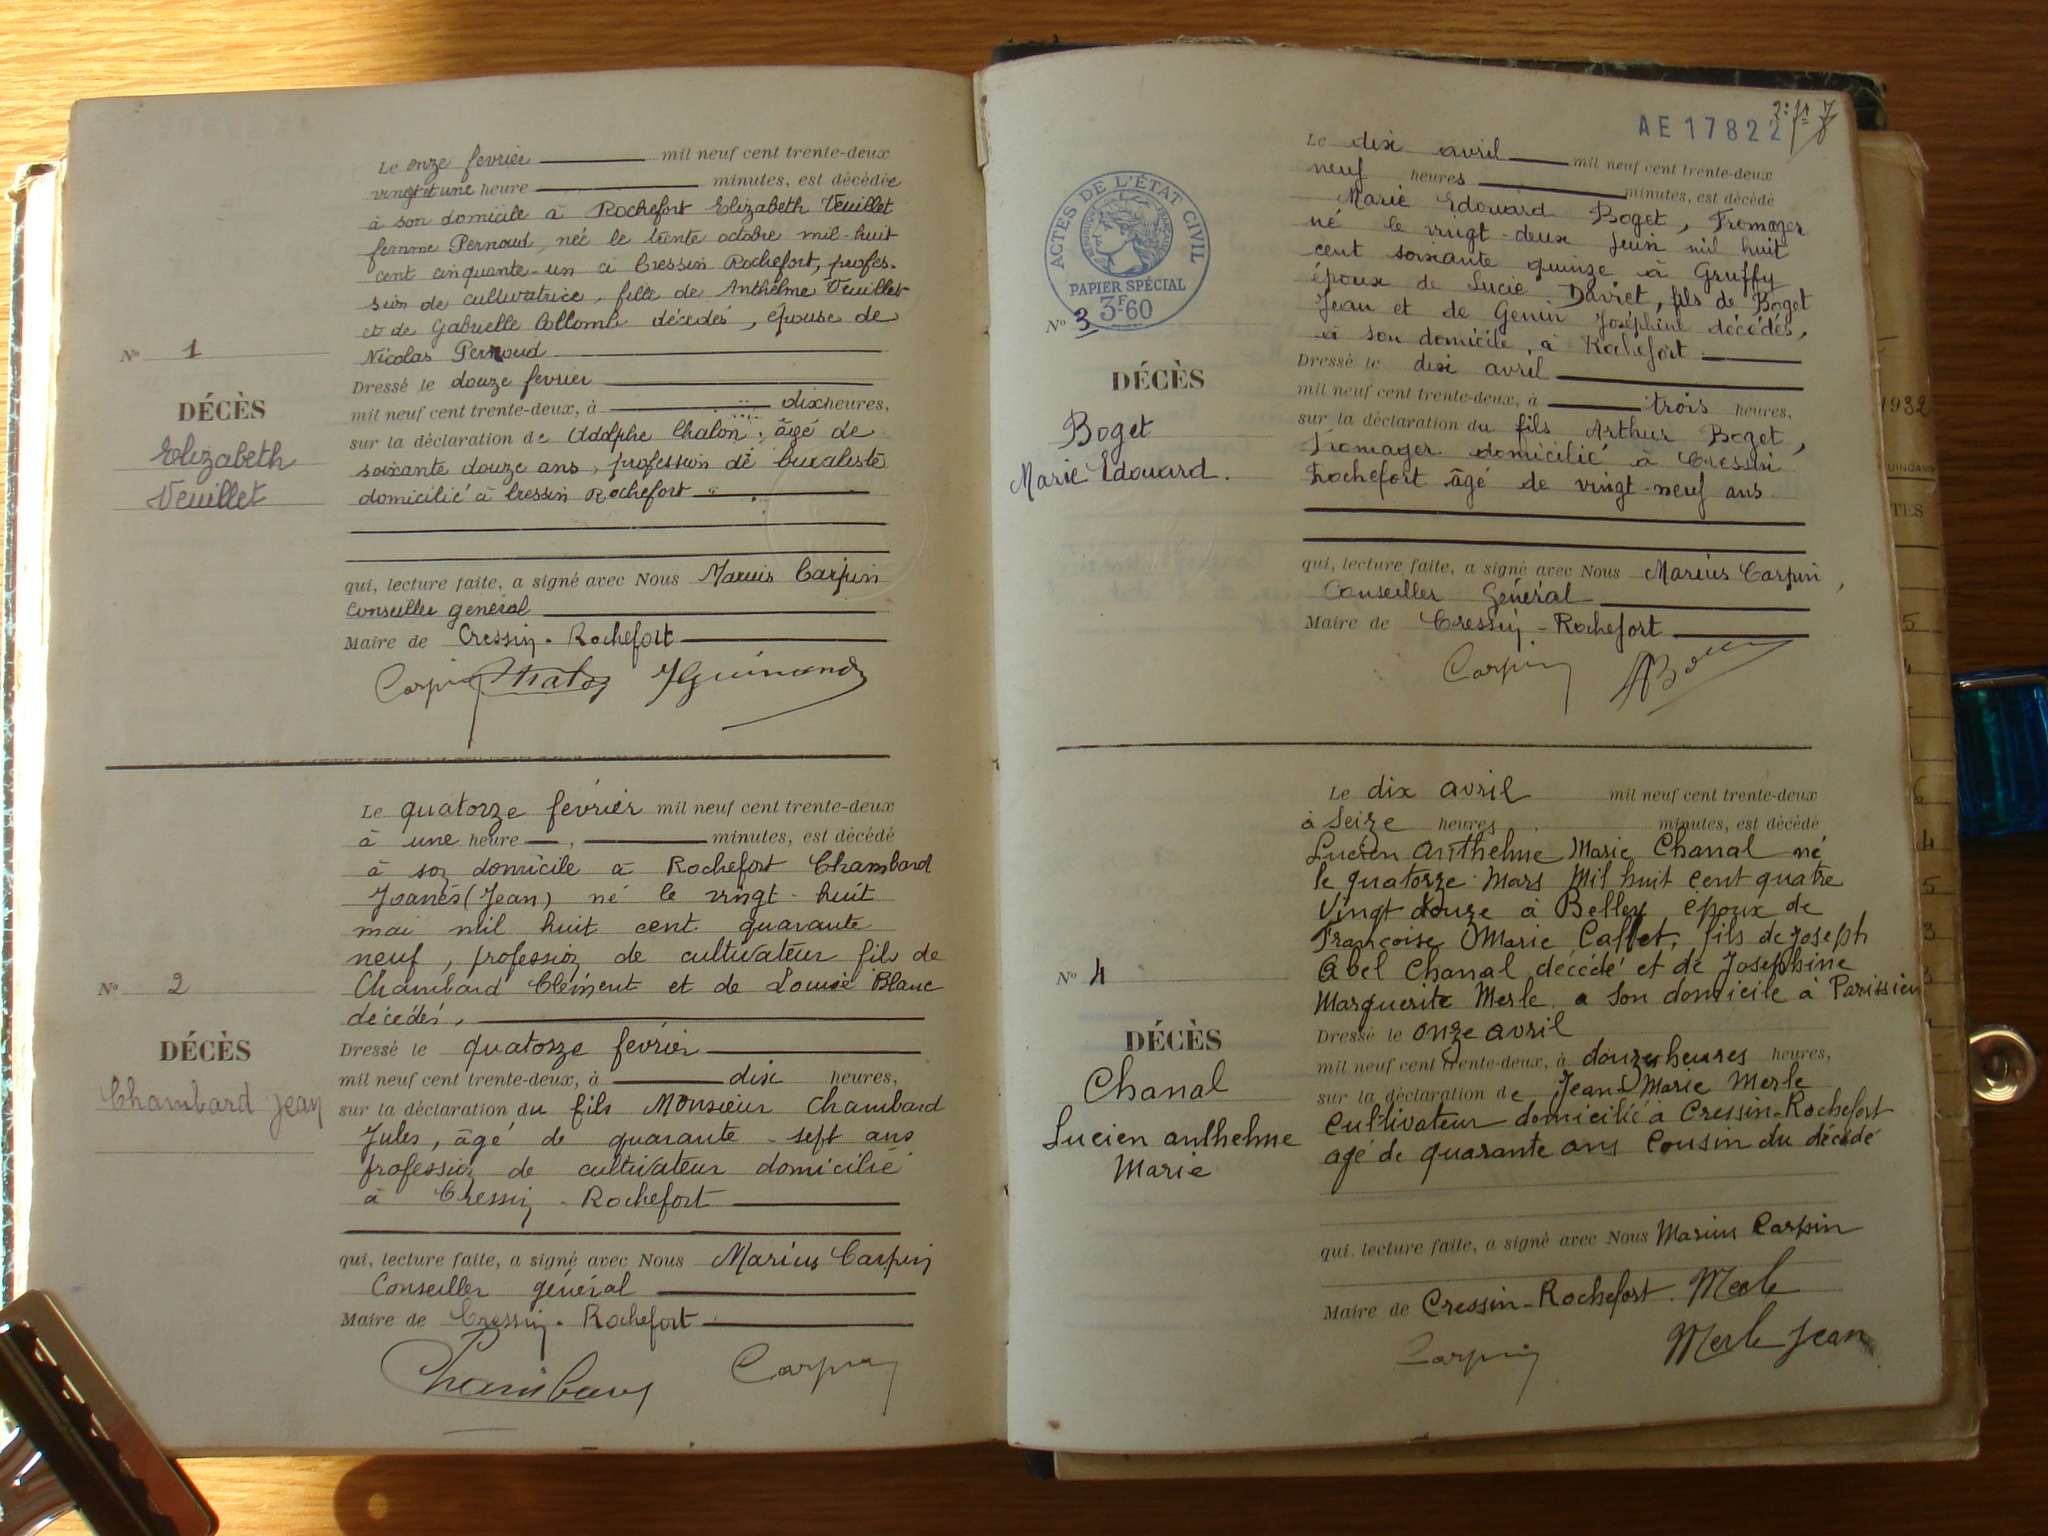 Le onze fevrier mil neuf cent trente-deux
vingt et une heure minutes, est décédée
à son domicile à Rochefort Elizabeth Veuillet
femme Pernoud, née le trente octobre mil-huit
cent cinquante-un à Cressin Rochefort, profes-
sion de cultivatrice, fille de Anthelme Veuillet
et de Gabrielle Collomb décédés, épouse de
Nicolas Pernoud
Nº 1
DÉCÈS
Elizabeth
Veuillet
Dressé le douze fevrier
mil neuf cent trente-deux, à dix heures,
sur la déclaration de Adolphe Chalon, âgé de
soixante douze ans, profession de buraliste
domicilié à Cressin Rochefort
qui, lecture faite, a signé avec Nous Marius Carpin
Conseiller général
Maire de Cressin-Rochefort
Carpin
Le quatorze février mil neuf cent trente-deux
à une heure, minutes, est décédé
à son domicile à Rochefort Chambard
Joanès (Jean) né le vingt-huit
mai mil huit cent quarante
neuf, profession de cultivateur fils de
Chambard Clément et de Louise Blanc
décédés,
Nº 2
DÉCÈS
Chambard Jean
Dressé le quatorze février
mil neuf cent trente-deux, à dix heures,
sur la déclaration du fils Monsieur Chambard
Jules, âgé de quarante-sept ans
profession de cultivateur domicilié
à Cressin-Rochefort
qui, lecture faite, a signé avec Nous Marius Carpin
Conseiller général
Maire de Cressin-Rochefort
Chambard Carpin
AE 17822
Le dix avril mil neuf cent trente-deux
neuf heures minutes, est décédé
Marie Edouard Boget, Fromager
né le vingt-deux juin mil huit
cent soixante quinze à Gruffy
époux de Lucie Daviet, fils de Boget
Jean et de Genin Joséphine décédés,
à son domicile, à Rochefort
ACTES DE L'ÉTAT CIVIL
PAPIER SPÉCIAL
3F60
Nº 3
DÉCÈS
Boget
Marie Edouard.
Dressé le dix avril
mil neuf cent trente-deux, à trois heures,
sur la déclaration du fils Arthur Boget,
Fromager domicilié à Cressin
Rochefort âgé de vingt-neuf ans
qui, lecture faite, a signé avec Nous Marius Carpin,
Conseiller Général
Maire de Cressin-Rochefort
Carpin
Le dix avril mil neuf cent trente-deux
à Seize heures minutes, est décédé
Lucien Anthelme Marie Chanal né
le quatorze Mars Mil huit cent quatre
Vingt douze à Belley, époux de
Françoise Marie Caffet, fils de Joseph
Abel Chanal décédé et de Josephine
Marguerite Merle a son domicile à Parissieu
Nº 4
DÉCÈS
Chanal
Lucien anthelme
Marie
Dressé le onze avril
mil neuf cent trente-deux, à douze heures heures,
sur la déclaration de Jean Marie Merle
Cultivateur domicilié a Cressin-Rochefort
agé de quarante ans Cousin du décédé
qui, lecture faite, a signé avec Nous Marius Carpin
Maire de Cressin-Rochefort. Merle
Carpin Merle Jean
1932